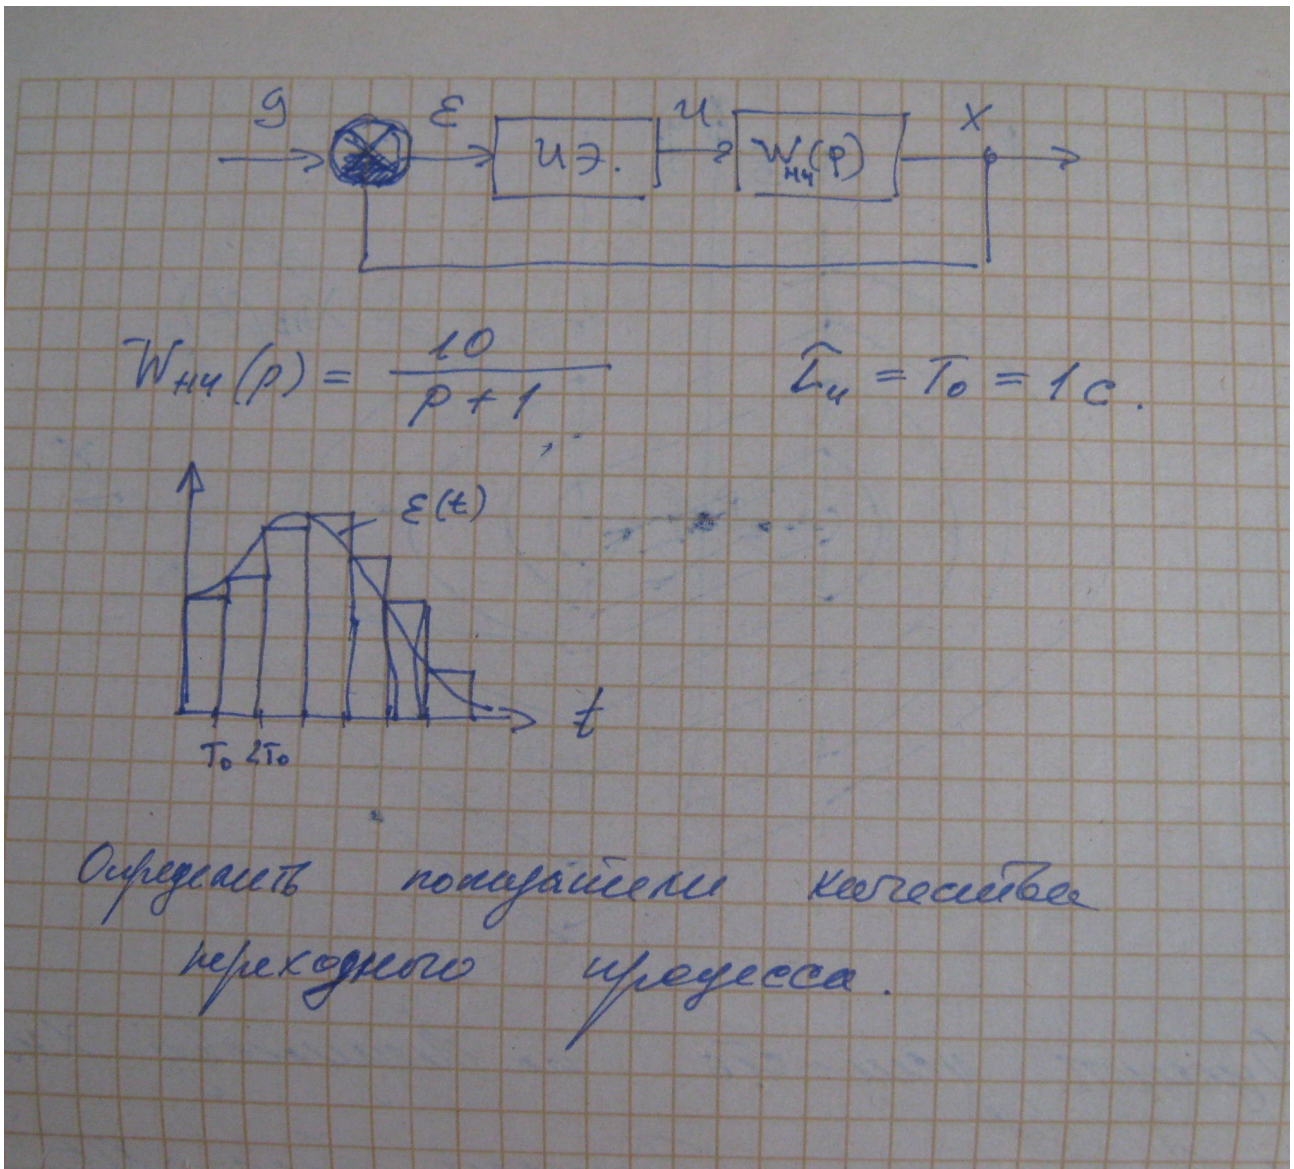 g ε и Э. u Wнч(p) x
Wнч(p) = 10 / (p + 1) τ̂и = T₀ = 1 c.
ε(t)
t
T₀ 2T₀
Определить показатели качества
переходного процесса.